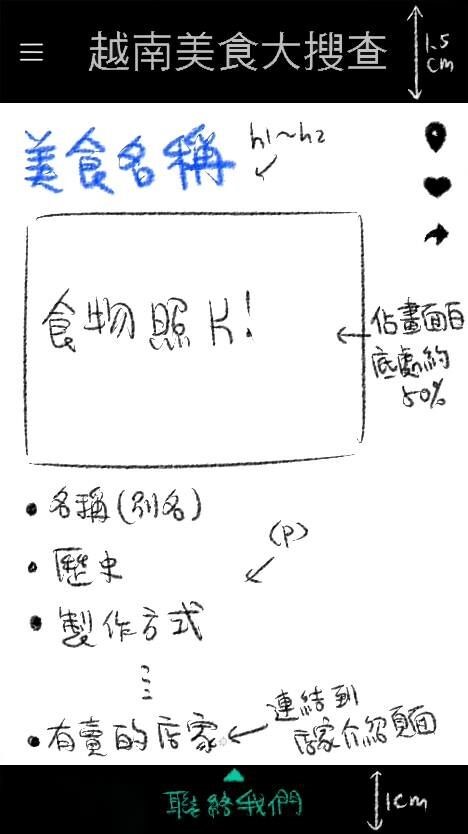 越南美食大搜查
1.5
cm
美食名稱
h1~h2
食物照片!
佔畫面白
底處約
50%
名稱(別名)
(p)
歷史
製作方式
連結到
有賣的店家
店家介紹頁面
聯絡我們
1cm